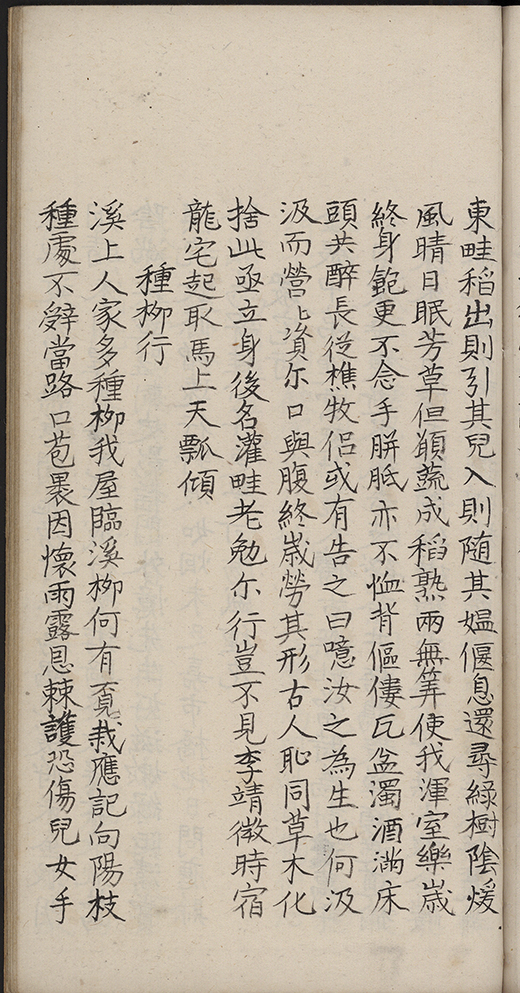 東畦稻出則引其兒入則随其媪偃息還尋綠樹陰煖
風晴日眠芳草但願蔬成稻熟兩無筭使我渾室樂歲
終身飽更不念手胼胝亦不恤背傴僂瓦盆濁酒滿床
頭共醉長從樵牧侣或有告之曰噫汝之為生也何汲
汲而營〻資尓口與腹終歲勞其形古人恥同草木化
捨此亟立身後名灌畦老勉尓行豈不見李靖微時宿
龍宅起取馬上天瓢傾
種柳行
溪上人家多種柳我屋臨溪柳何有亰栽應記向陽枝
種處不辤當路口苞褁因懷雨露恩棘護恐傷兒女手